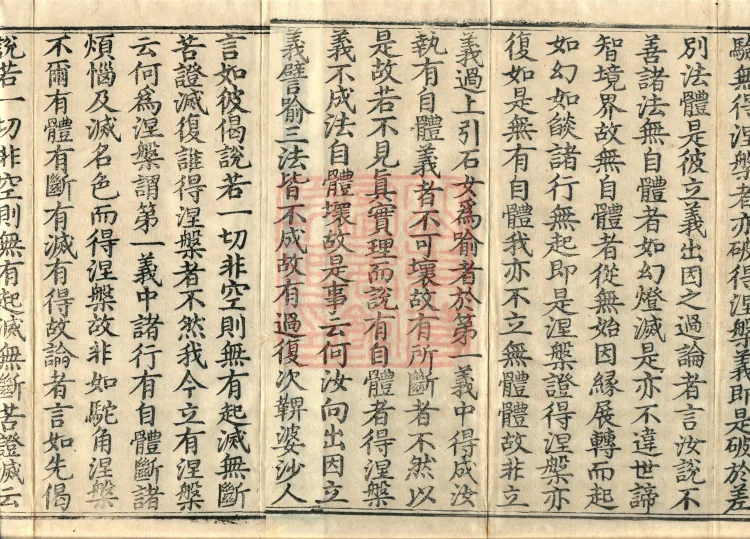 驗無行涅槃者亦破得涅槃義即是破於差
別法體是彼立義出因之過論者言汝說不
善諸法無自體者如幻燈滅是亦不違世諦
智境界故無自體者從無始因緣展轉而起
如幻如燄諸行無起即是涅槃證得涅槃亦
復如是無有自體我亦不立無體體故非立
義過上引石女為喻者於第一義中得成汝
執有自體義者不可壞故有所斷者不然以
是故若不見真實理而說有自體者得涅槃
義不成法自體壞故是事云何汝向出因立
義譬喻三法皆不成故有過復次鞞婆沙人
言如彼偈說若一切非空則無有起滅無斷
苦證滅復誰得涅槃者不然我今立有涅槃
云何為涅槃謂第一義中諸行有自體斷諸
煩惱及滅名色而得涅槃故非如駝角涅槃
不爾有體有斷有滅有得故論者言如先偈
說若一切非空則無有起滅無斷苦證滅云